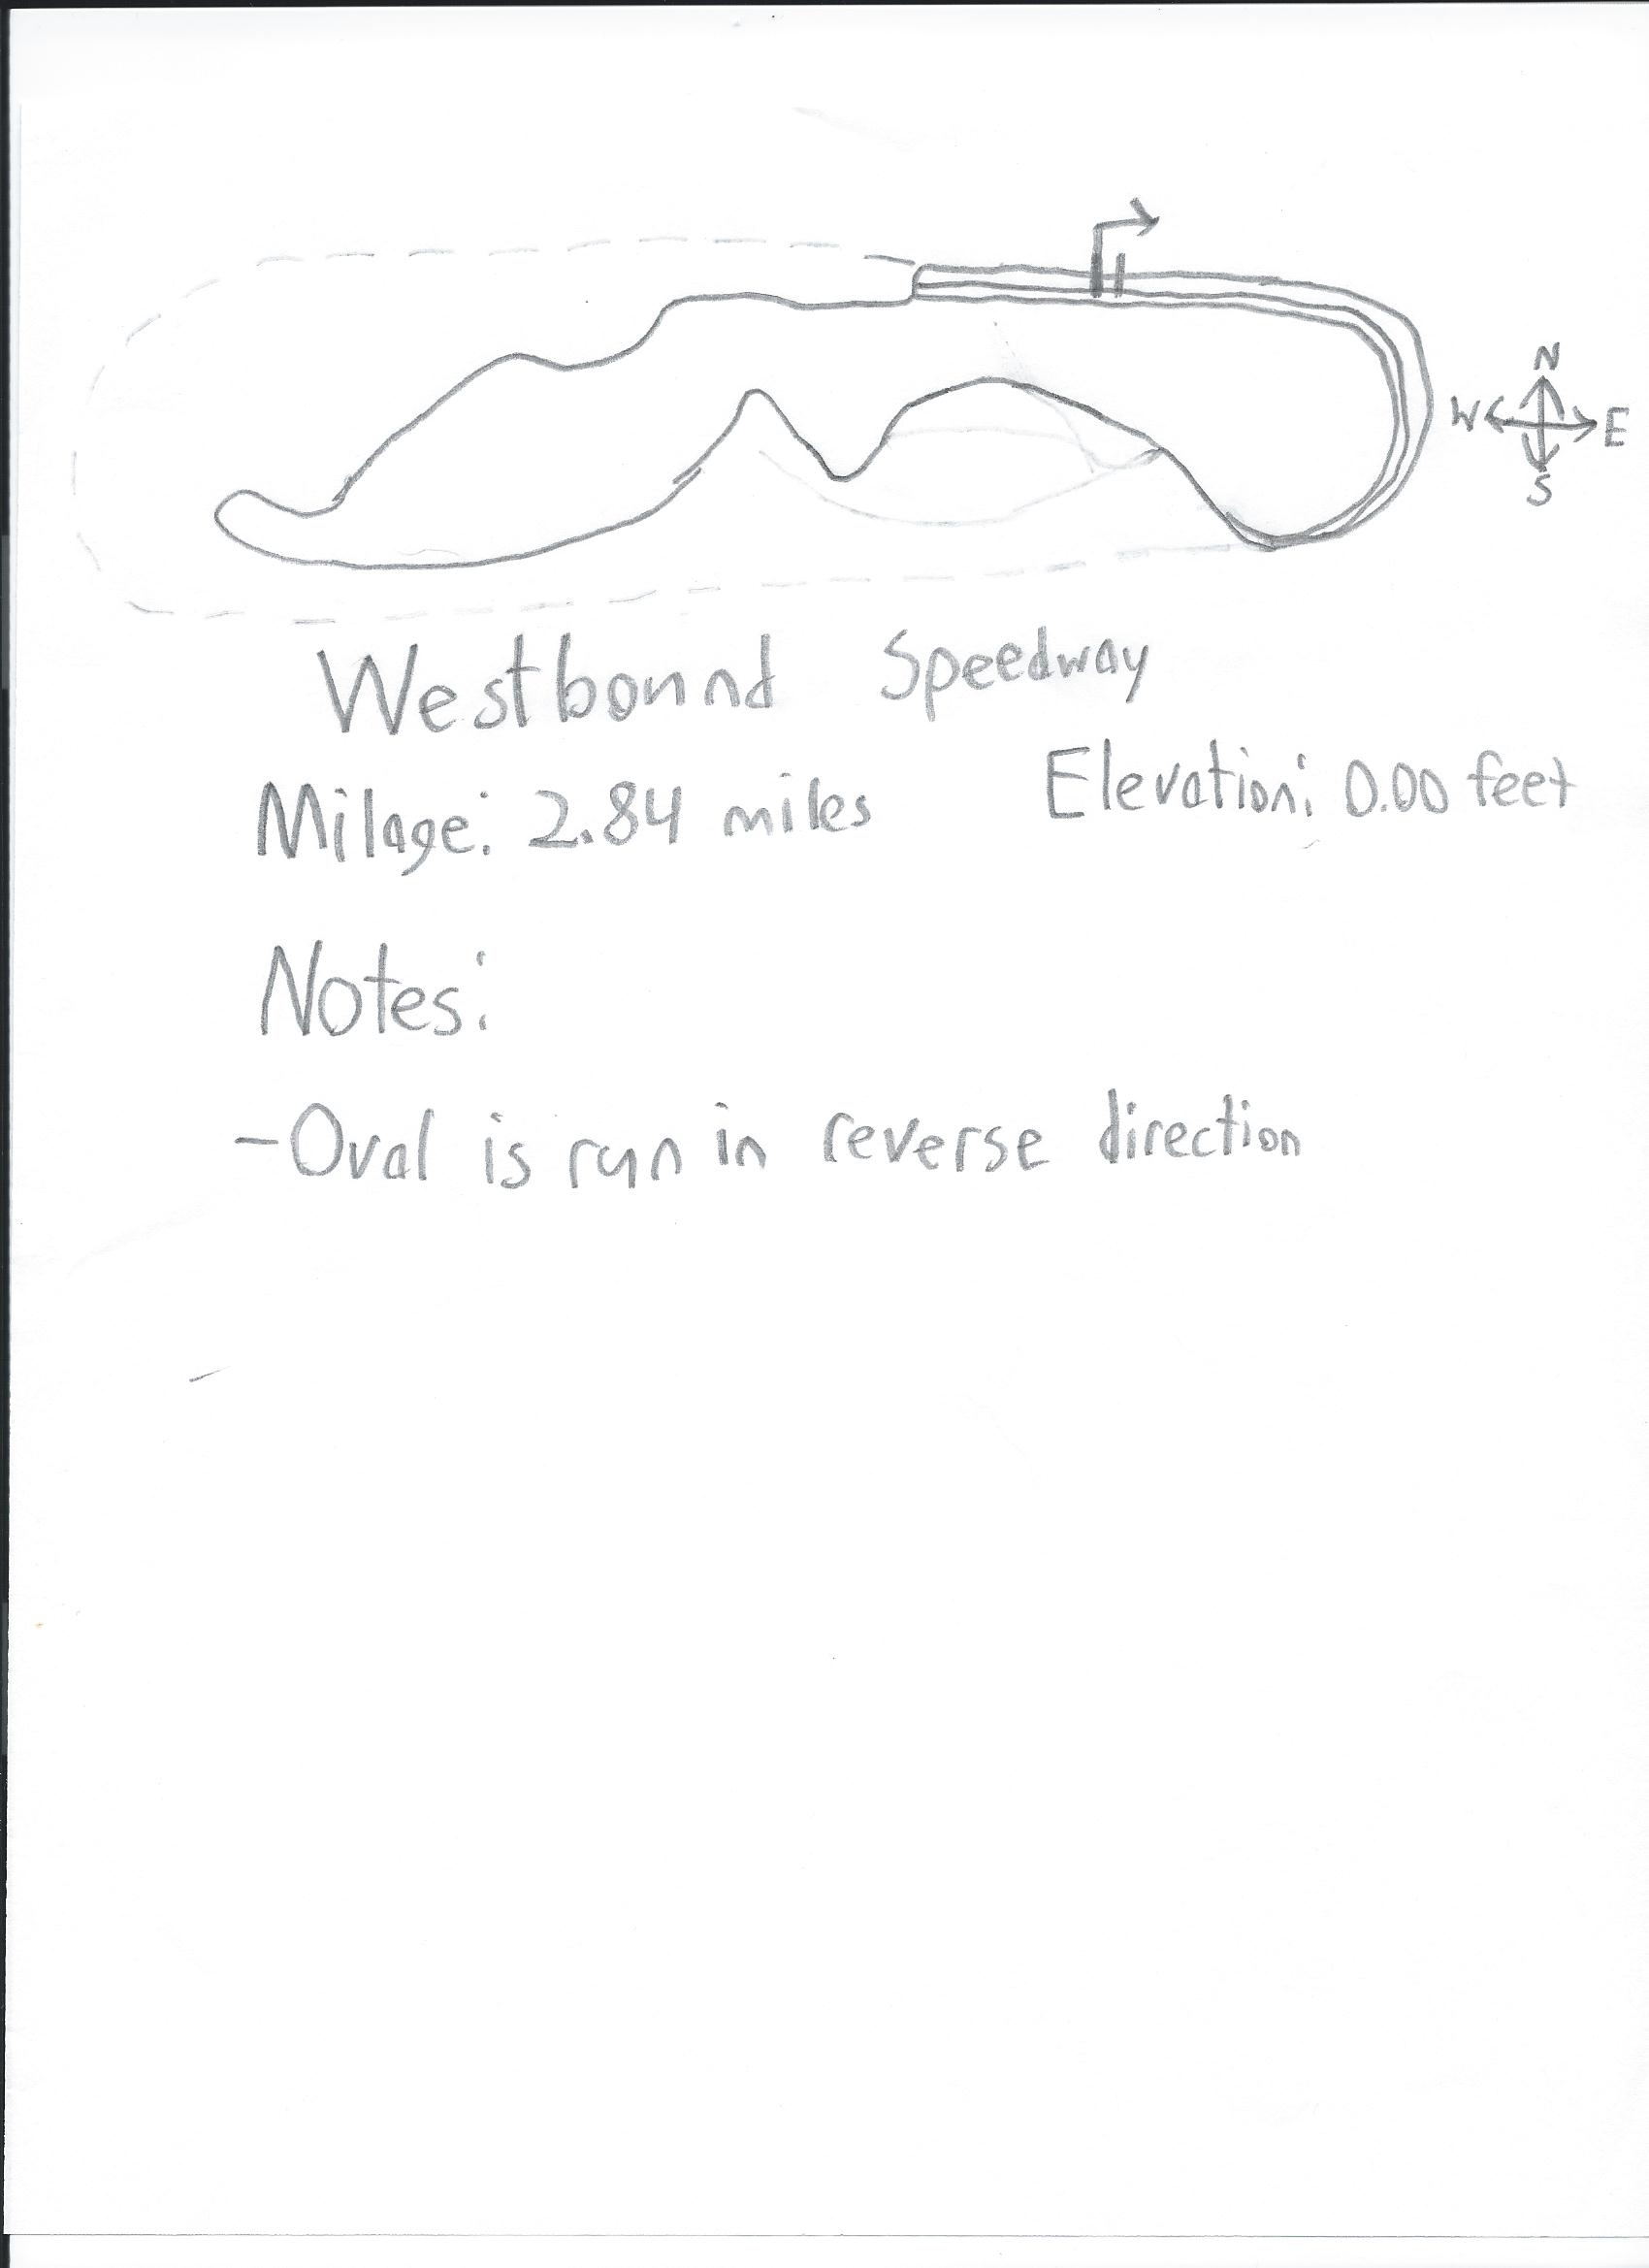 N
W E
S
Westbound Speedway
Milage: 2.84 miles Elevation: 0.00 feet
Notes:
-Oval is run in reverse direction